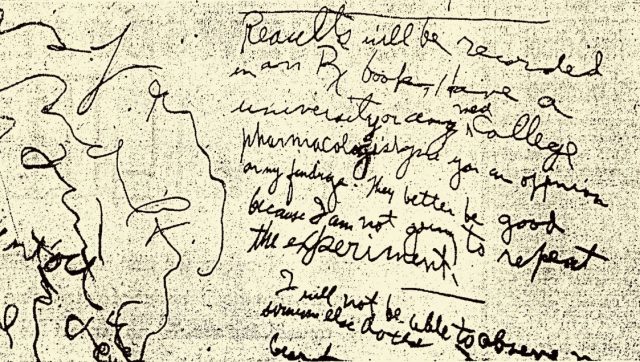 Results will be recorded
in an Rx book. Have a
university or any med College
pharmacologist give you an oppinion
on my findings. They better be good
because I am not going to repeat
the experiment.
I will not be able to observe
else do the